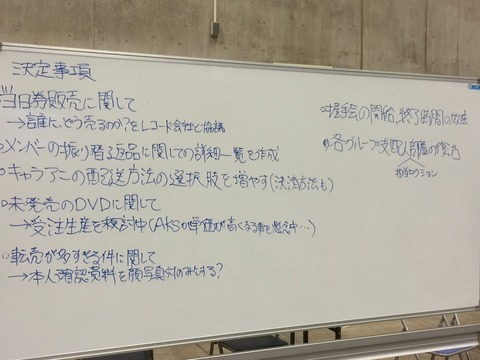 決定事項
当日券販売に関して
→誰に、どう売るのか?をレコード会社と協議
○メンバーの振り替え返品に関しての詳細一覧を作成
○キャラアニの配送方法の選択肢を増やす(決済方法も)
○未発売のDVDに関して
→受注生産を検討中(AKSが単価が高くなる事を懸念中…)
○転売が多すぎる件に関して
→本人確認資料を顔写真付のみにする?
○握手会の開始、終了時間の改定
○各グループ支配人部屋の復活